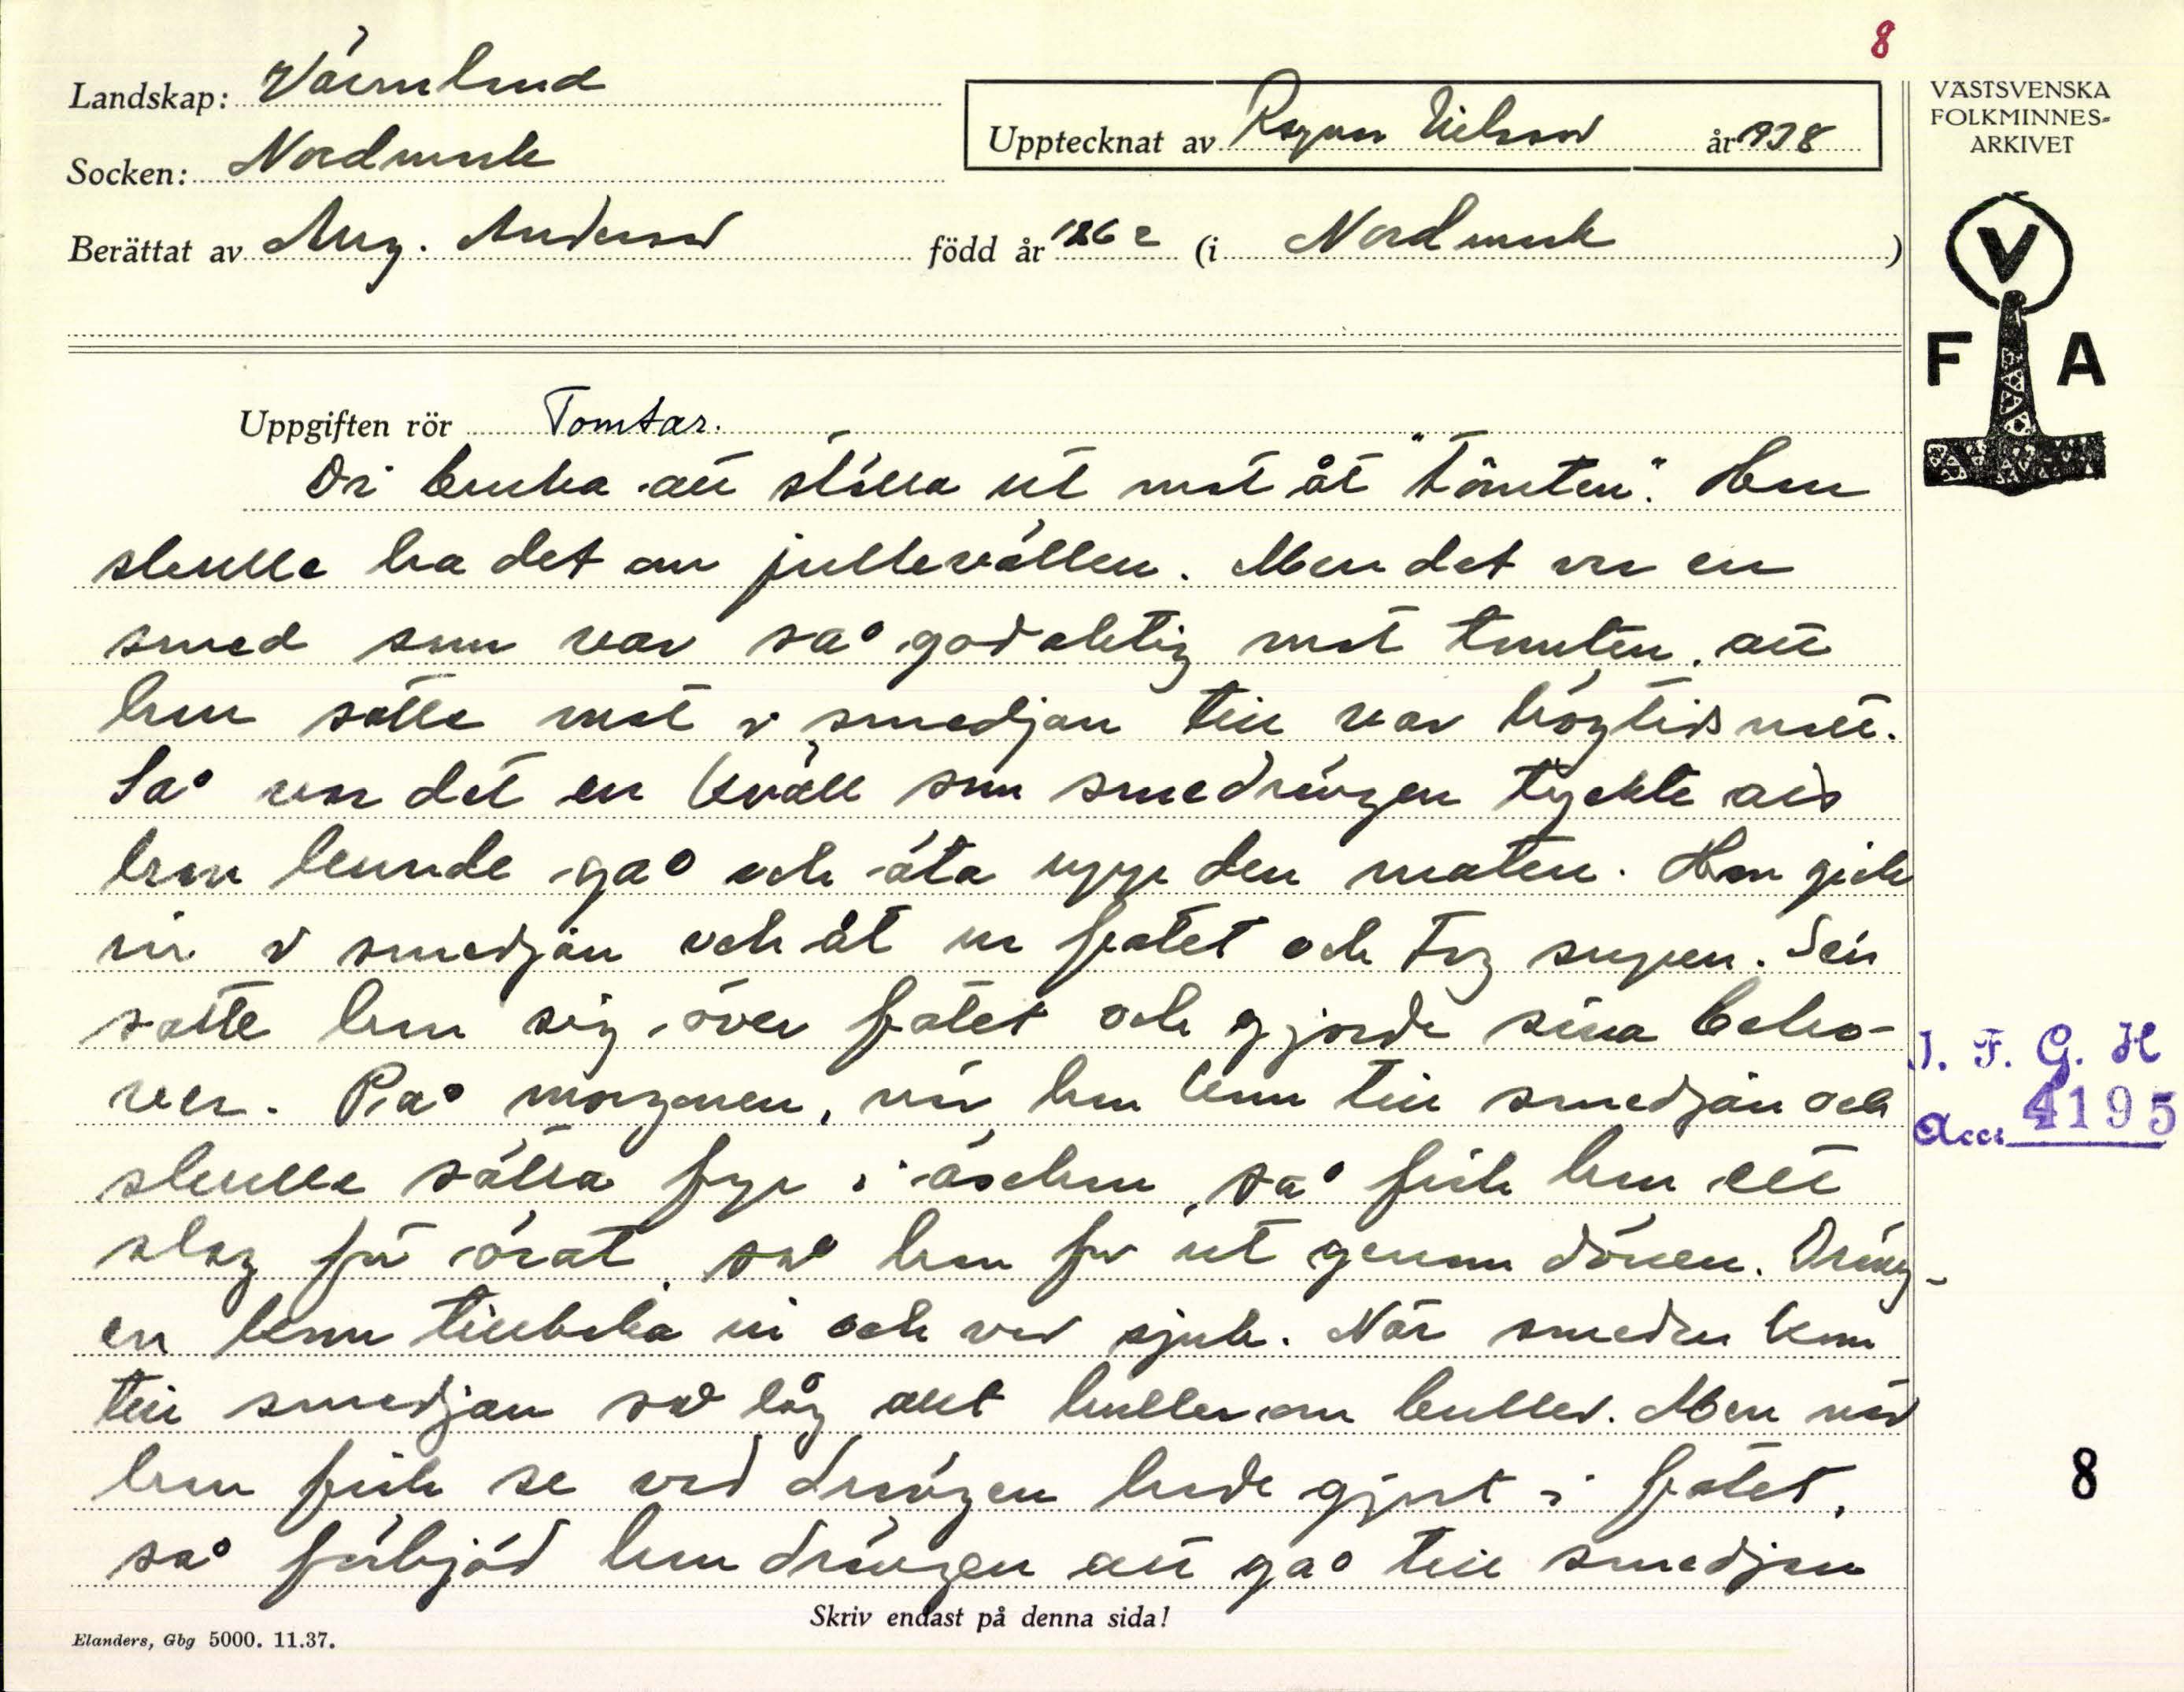 8
Landskap: Värmland
VÄSTSVENSKA
FOLKMINNES-
ARKIVET
Upptecknat av Ragnar Nilsson år 1938
Socken: Nordmark
Berättat av Aug. Andersson född år 1862 (i Nordmark)
V
F A
Uppgiften rör Tomtar.
Di bruka att ställa ut mat åt "tömten". Han
skulle ha det om jullekvällen. Men det var en
smed som var så godaktig mot tomten, att
han satte mat i smedjan till var högtidsnatt.
Så var det en kväll som smedrängen tyckte att
han kunde gå och äta upp den maten. Han gick
in i smedjan och åt ur fatet och tog supen. Sen
satte han sig över fatet och gjorde sina beho-
ver. På morgonen, när han kom till smedjan och
skulle sätta fyr i äschan, så fick han ett
slag för örat, så han for ut genom dörren. Dräng-
en kom tillbaka in och var sjuk. När smeden kom
till smedjan så låg allt huller om buller. Men när
han fick se vad drängen hade gjort i fatet,
så förbjöd han drängen att gå till smedjan
I. F. G. H
Acc. 4195
8
Skriv endast på denna sida!
Elanders, Gbg 5000. 11.37.